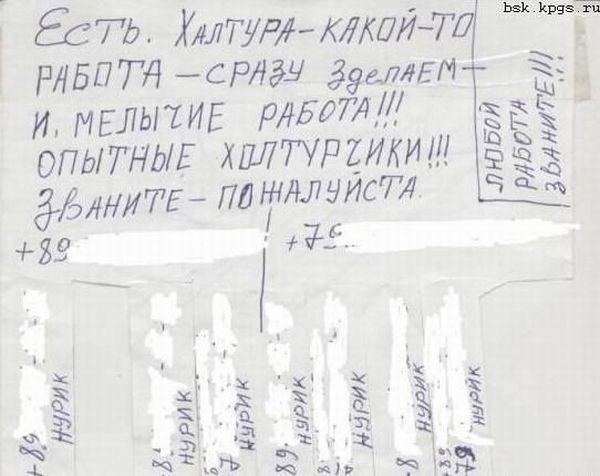 bsk.kpgs.ru
ЕСТЬ. ХАЛТУРА-КАКОЙ-ТО
РАБОТА - СРАЗУ ЗДЕЛАЕМ-
И. МЕЛЫЧИЕ РАБОТА!!!
ОПЫТНЫЕ ХОЛТУРЧИКИ!!!
ЗВАНИТЕ - ПОЖАЛУЙСТА.
ЛЮБОЙ
РАБОТА
ЗВАНИТЕ!!!
+89
+79
+89
НУРИК
НУРИК
НУРИК
НУРИК
НУРИК
НУРИК
НУРИК